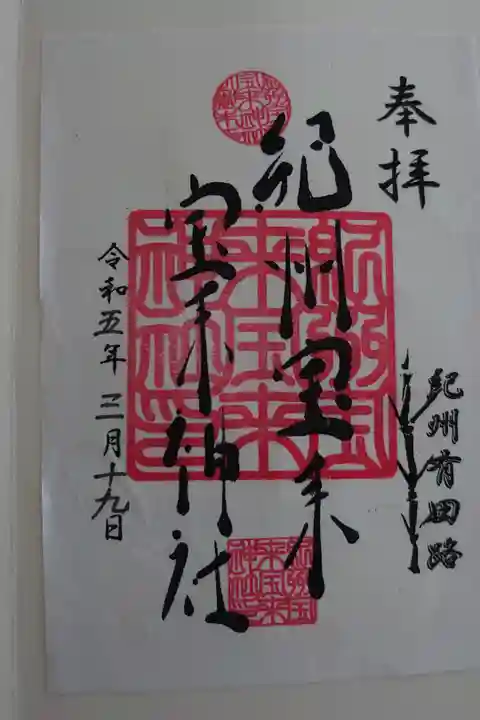 奉拝
紀州有田路
紀州宝来
宝来神社
令和五年三月十九日